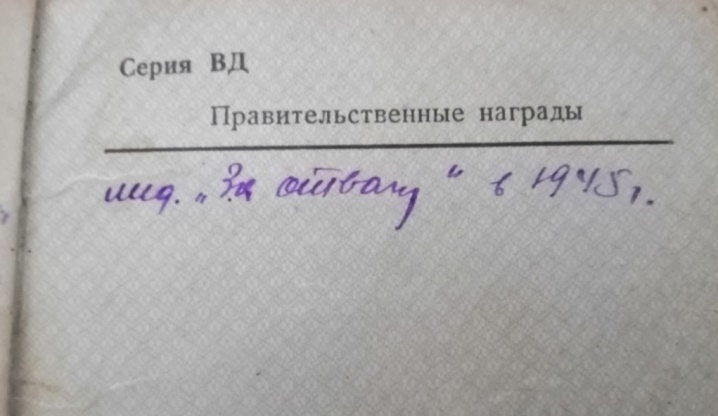 Серия ВД
Правительственные награды
мед. „За отвагу“ в 1945 г.